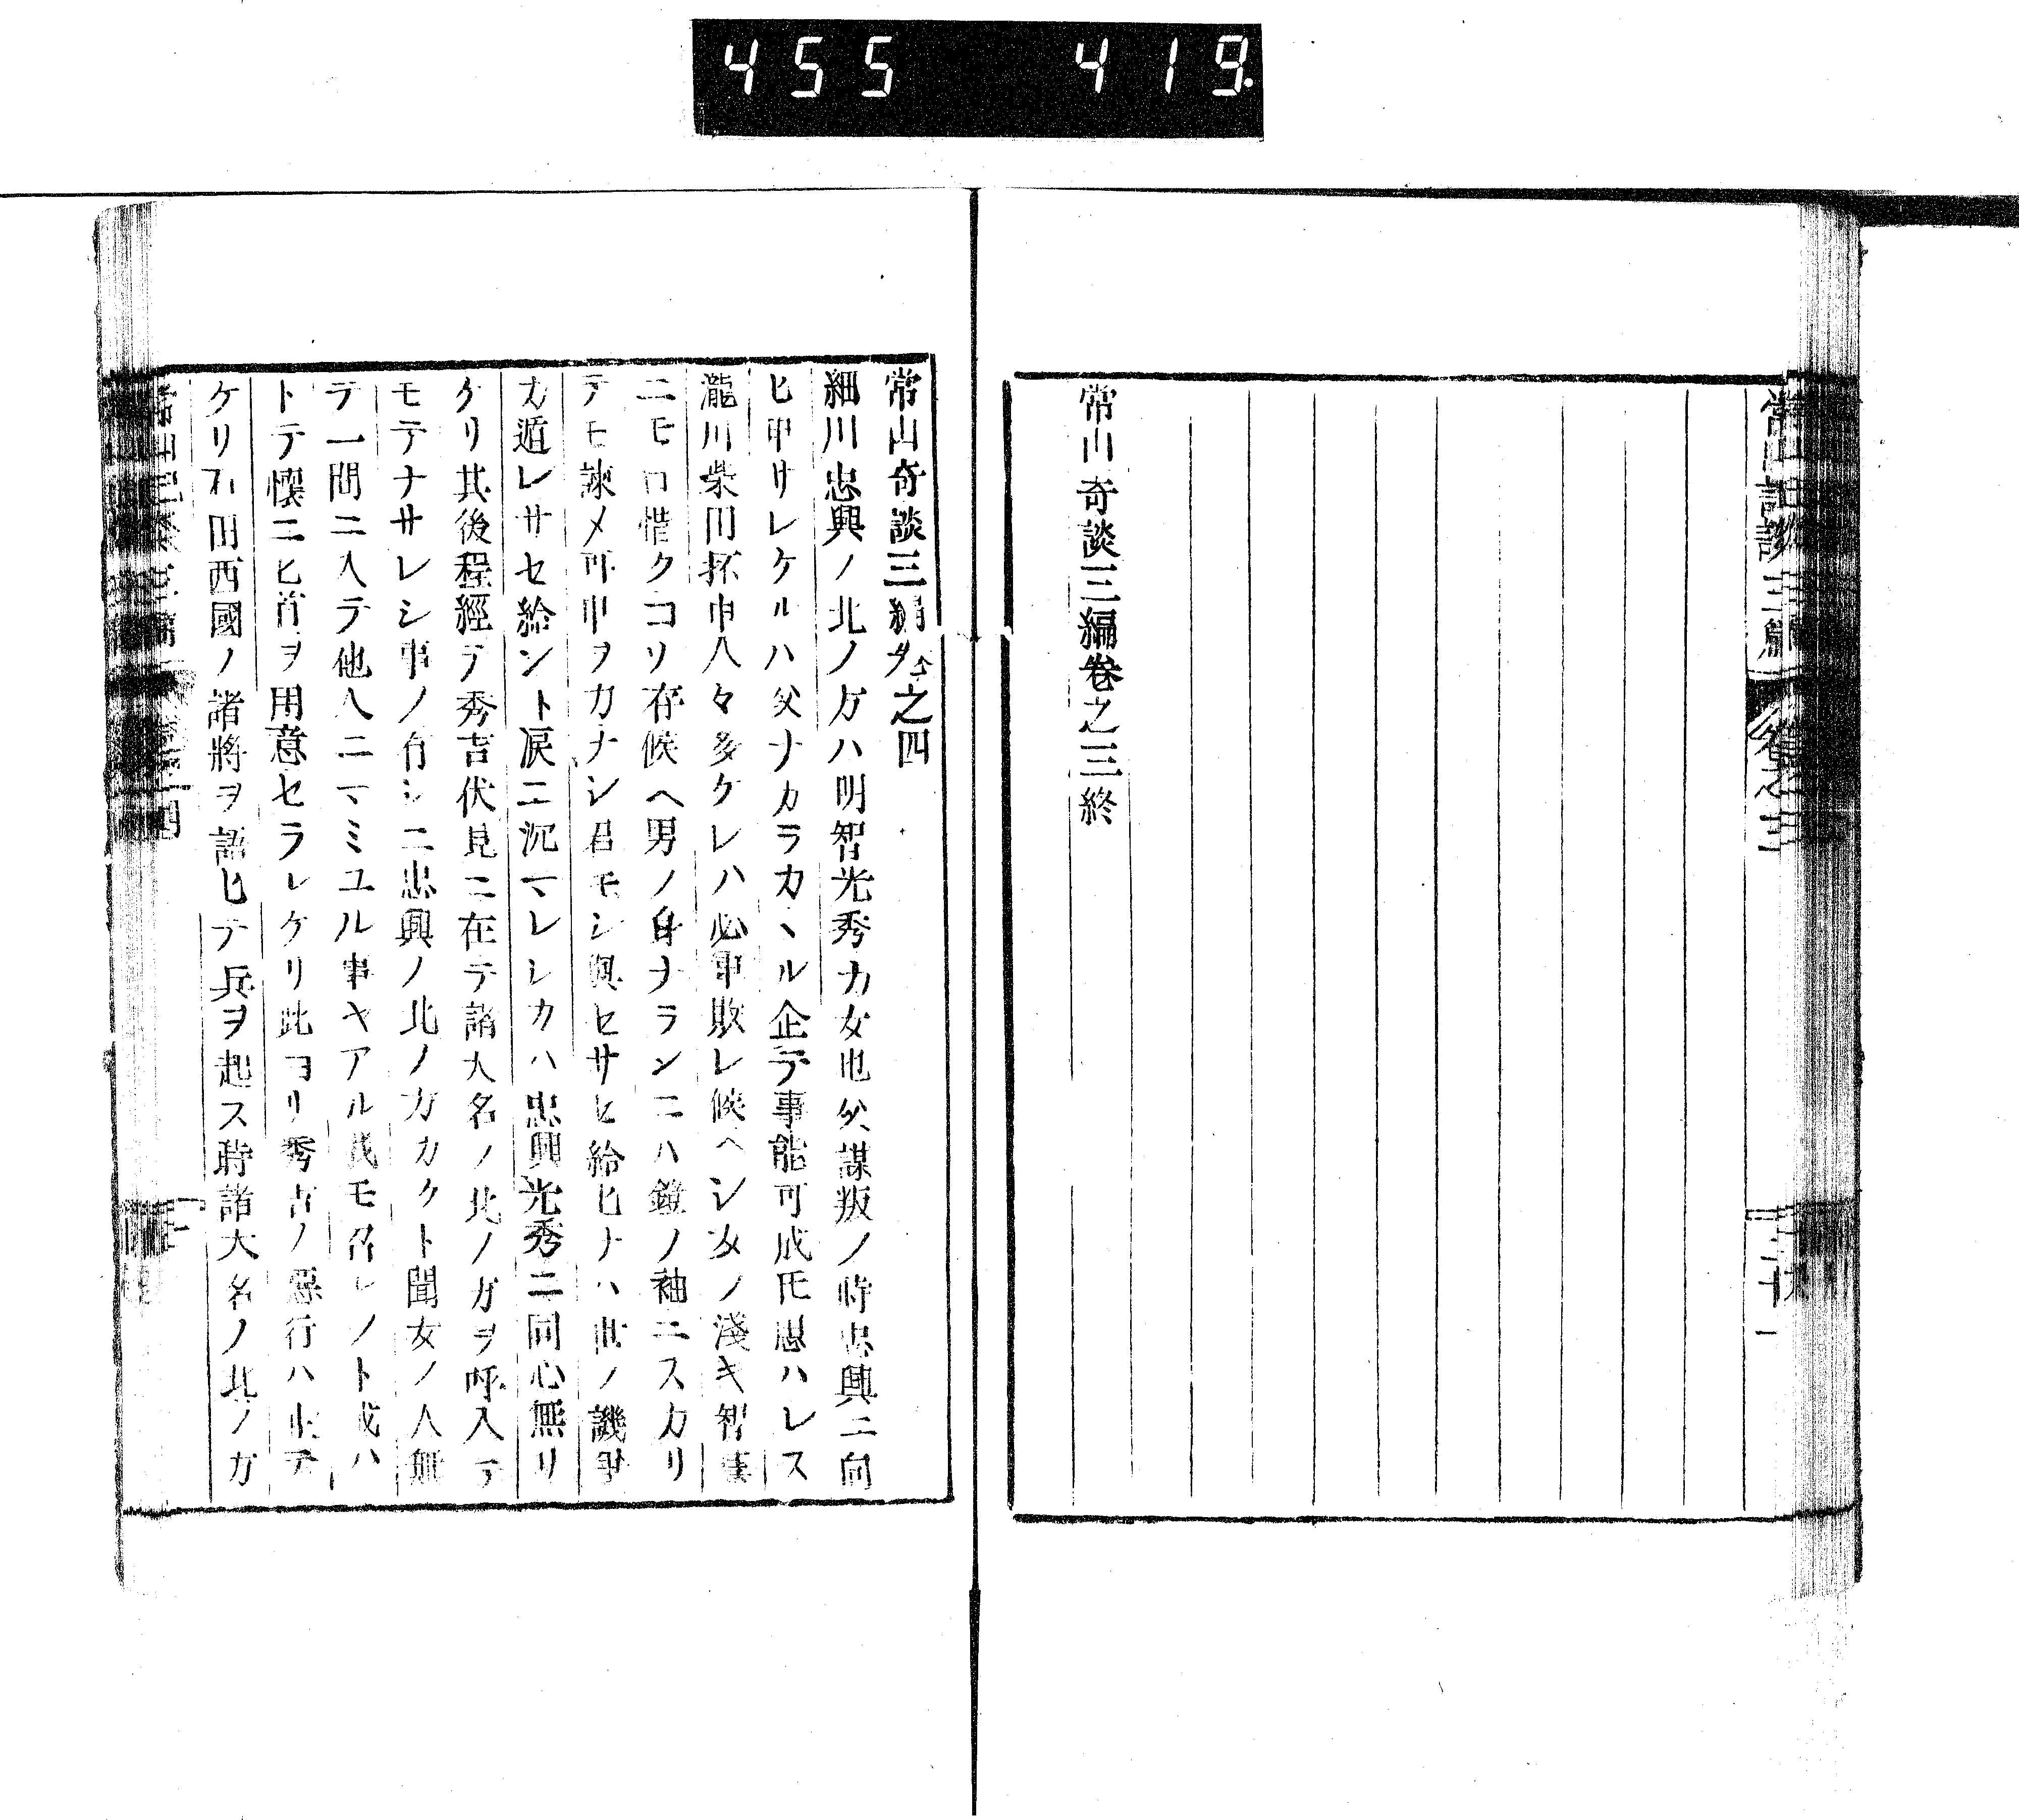 455 419
常山奇談三編巻之三終
常山奇談三編 之四
細川忠興ノ北ノ方ハ明智光秀カ女也父謀叛ノ時忠興ニ向
ヒ申サレケルハ父ナカラカヽル企テ事能可成氏思ハレス
瀧川柴田抔申人々多ケレハ必軍敗レ候ヘシ女ノ淺キ智
ニモ口惜クコソ存候ヘ男ノ身ナランニハ鎧ノ袖ニスカリ
テモ諫メ可申ヲカナシ君モシ與セサセ給ヒナハ世ノ譏
カ遁レサセ給ント涙ニ沉マレシカハ忠興光秀ニ同心無リ
ケリ其後程經テ秀吉伏見ニ在テ諸大名ノ北ノ方ヲ呼入テ
モテナサレシ事ノ有シニ忠興ノ北ノ方カクト聞女ノ人無
テ一間ニ入テ他人ニマミユル事ヤアル我モ召レノト成ハ
トテ懷ニヒ首ヲ用意セラレケリ此ヨリ秀吉ノ惡行ハ止テ
ケリ石田西國ノ諸將ヲ語ヒテ兵ヲ起ス時諸大名ノ北ノ方